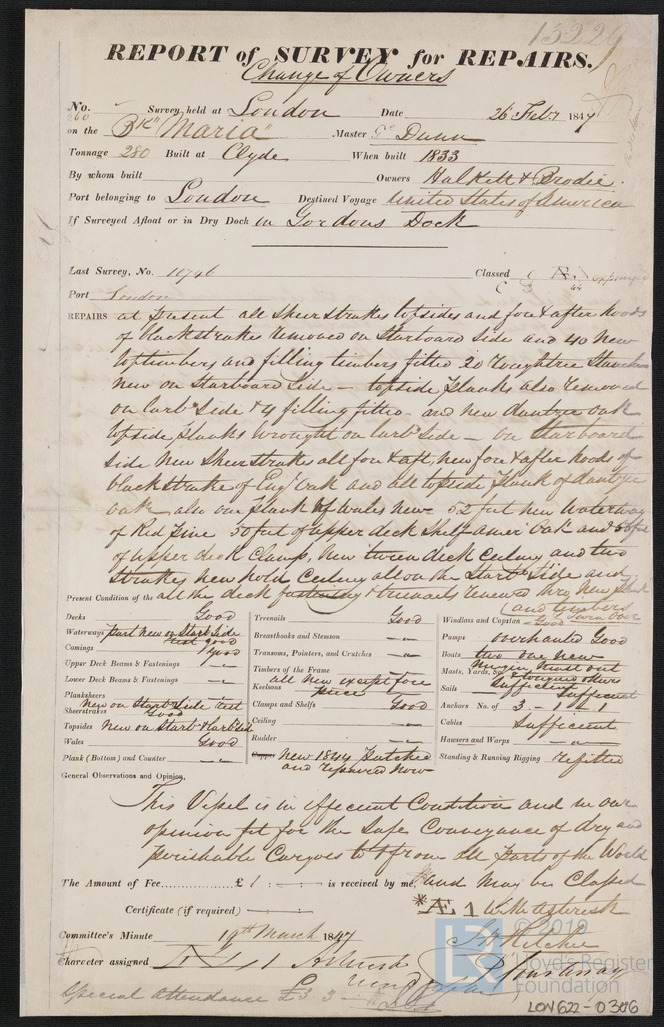 REPORT of SURVEY for REPAIRS.
Change of Owners
No. 260 Survey held at London Date 26 Feby 1847
on the Bk "Maria" Master Geo Dunn
Tonnage 280 Built at Clyde When built 1833
By whom built Owners Halkett & Brodie.
Port belonging to London Destined Voyage United States of America
If Surveyed Afloat or in Dry Dock in Gordons Dock
Last Survey, No. 10746 Classed Æ1 expunged
Port London
REPAIRS at present all Sheerstrakes topsides and fore & after hoods
of blackstrakes removed on Starboard Side and 40 New
toptimbers and filling timbers fitted 20 Roughtree Stanchions
new on Starboard Side — topside planks also removed
on Larbd Side & 4 filling fitted - and new dantzic oak
topside planks wrought on Larbd Side — on Starboard
Side New Sheerstrakes all fore & aft, new fore & after hoods of
blackstrake of Engh Oak and all topside plank of dantzic
oak also one plank of Wales new 52 feet new Waterway
of Red Pine 50 feet of upper deck Shelf Amern Oak and
of upper deck Clamp, New tween deck Ceiling and two
Strakes new hold Ceiling all on the Starbd Side and
all the deck fastening & treenails renewed thro New Plank
and timbers
Present Condition of the
Decks Good
Waterways part new on Starbd Side
rest good
Comings Good
Upper Deck Beams & Fastenings — „ —
Lower Deck Beams & Fastenings — „ —
Planksheers
Sheerstrakes New on Starbd Side rest
Good
Topsides New on Starbd & Larbd Sid
Wales Good
Plank (Bottom) and Counter — „ —
Treenails Good
Breasthooks and Stemson — „ —
Transoms, Pointers, and Crutches — „ —
Timbers of the Frame — „ —
Keelsons all New except fore
piece
Clamps and Shelfs Good
Ceiling — „ —
Rudder — „ —
Copper New 1844 Patched
and repaired Now
Windlass and Capstan Good
Pumps overhauled Good
Boats two one new
Masts, Yards, &c.
Sails Sufficient
Anchors No. of 3 - 1 - 1
Cables Sufficient
Hawsers and Warps — „ —
Standing & Running Rigging refitted
General Observations and Opinion,
This Vessel is in efficient Condition and in our
opinion fit for the Safe Conveyance of dry and
perishable Cargoes to & from all parts of the World
The Amount of Fee............£ 1 : — : — is received by me, and may be Classed
*Æ 1 with Asterisk
Certificate (if required) — : — : —
Committee's Minute 19th March 1847
Character assigned Æ 1 Asterisk
Special Attendance £3 3 —
© 2019
Lloyd's Register
Foundation
LON622-0306